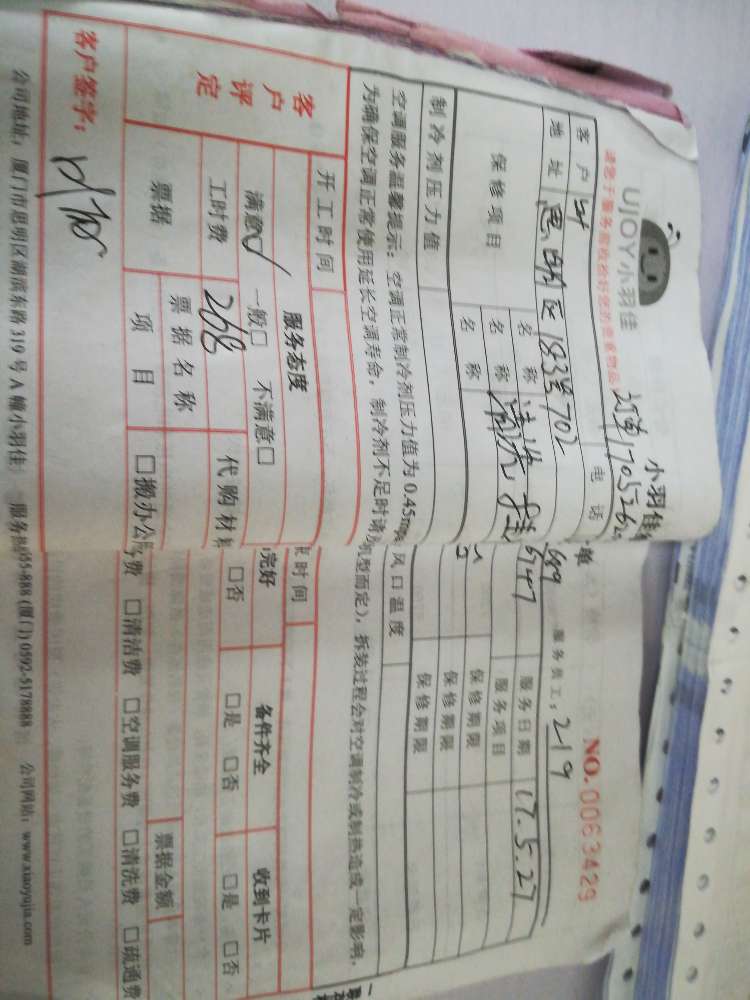 UJOY小羽佳
小羽佳
单
NO. 0063429
请您于服务前收拾好您的贵重物品
服务员工: 219
客户
电话
服务日期 17.5.27
地址 思明区183号702
服务项目
保修项目
名称 清洗
保修期限
名称
保修期限
名称
保修期限
制冷剂压力值
风口温度
空调服务温馨提示: 空调正常制冷剂压力值为0.45mpa
机型而定), 拆装过程会对空调制冷或制热造成一定影响,
为确保空调正常使用延长空调寿命, 制冷剂不足时请
开工时间
时间
客户评定
服务态度
完好
备件齐全
收到卡片
满意☑ 一般□ 不满意□
□否
□是 □否
□是 □否
工时费 268
代购材料
票据
票据名称
票据金额
项目
□搬办公 费 □清洁费 □空调服务费 □清洗费 □疏通费
客户签字:
公司地址: 厦门市思明区湖滨东路319号A幢小羽佳
服务热 55-888 (厦门) 0592-5178888
公司网站: www.xiaoyujia.com